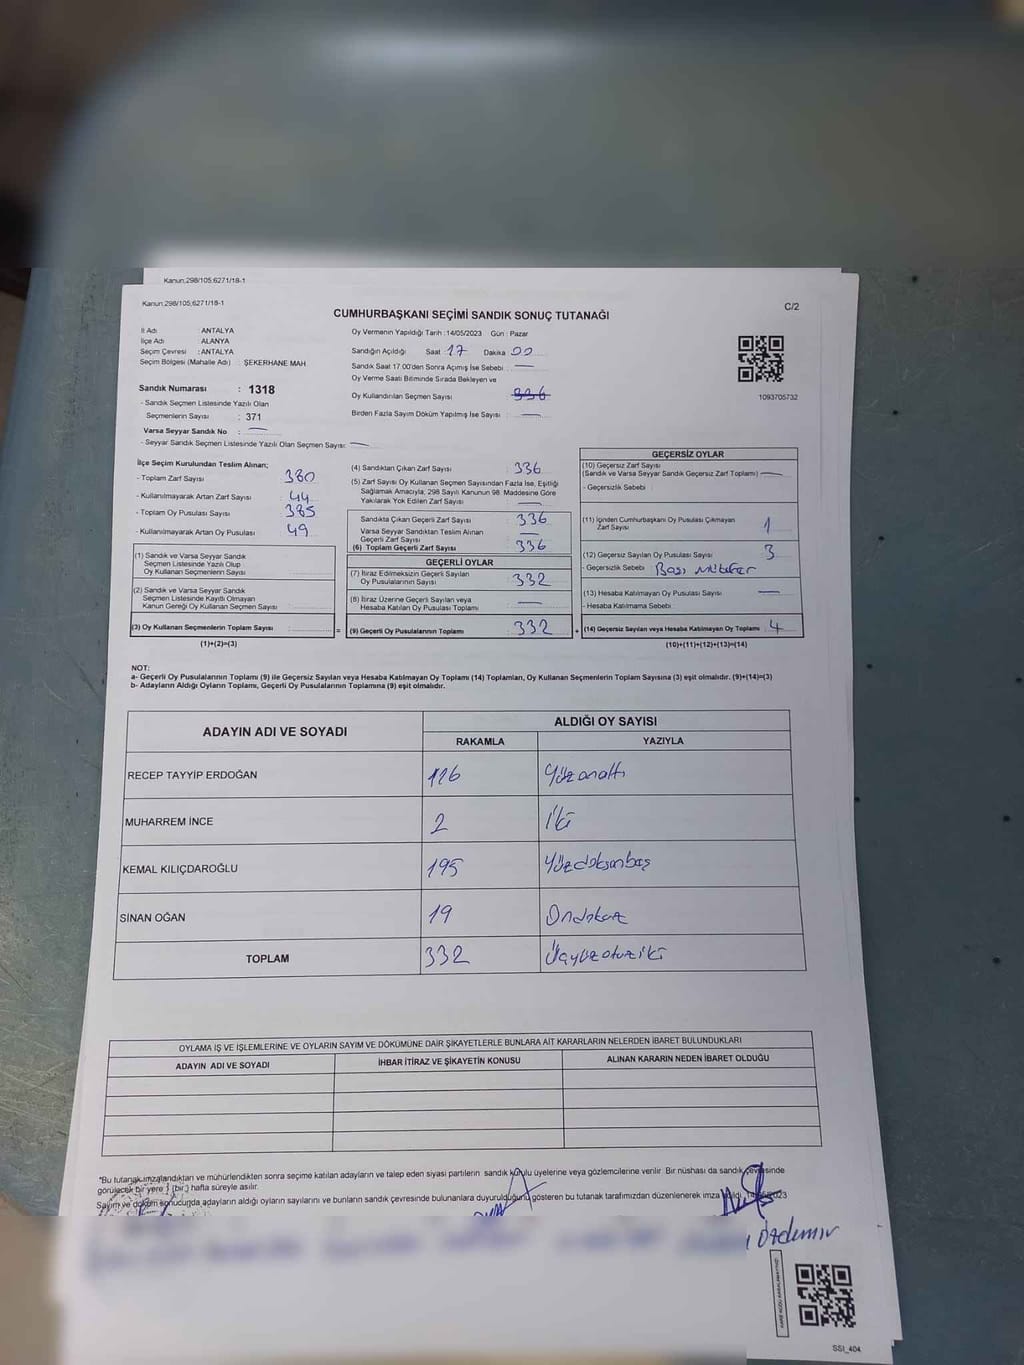 Kanun;298/105;6271/18-1
Kanun;298/105;6271/18-1
C/2
CUMHURBAŞKANI SEÇİMİ SANDIK SONUÇ TUTANAĞI
İl Adı : ANTALYA
İlçe Adı : ALANYA
Seçim Çevresi : ANTALYA
Seçim Bölgesi (Mahalle Adı) : ŞEKERHANE MAH
Sandık Numarası : 1318
- Sandık Seçmen Listesinde Yazılı Olan
Seçmenlerin Sayısı : 371
Varsa Seyyar Sandık No : —
- Seyyar Sandık Seçmen Listesinde Yazılı Olan Seçmen Sayısı: —
Oy Vermenin Yapıldığı Tarih :14/05/2023 Gün : Pazar
Sandığın Açıldığı Saat :17 Dakika 00
Sandık Saat 17.00'den Sonra Açımış İse Sebebi : —
Oy Verme Saati Bitiminde Sırada Bekleyen ve
Oy Kullandırılan Seçmen Sayısı 336
Birden Fazla Sayım Döküm Yapılmış İse Sayısı : —
1093705732
İlçe Seçim Kurulundan Teslim Alınan;
- Toplam Zarf Sayısı 380
- Kullanılmayarak Artan Zarf Sayısı : 44
- Toplam Oy Pusulası Sayısı : 385
- Kullanılmayarak Artan Oy Pusulası : 49
(1) Sandık ve Varsa Seyyar Sandık
Seçmen Listesinde Yazılı Olup
Oy Kullanan Seçmenlerin Sayısı
(2) Sandık ve Varsa Seyyar Sandık
Seçmen Listesinde Kayıtlı Olmayan
Kanun Gereği Oy Kullanan Seçmen Sayısı :
(3) Oy Kullanan Seçmenlerin Toplam Sayısı :
(1)+(2)=(3)
(4) Sandıktan Çıkan Zarf Sayısı : 336
(5) Zarf Sayısı Oy Kullanan Seçmen Sayısından Fazla İse, Eşitliği
Sağlamak Amacıyla; 298 Sayılı Kanunun 98. Maddesine Göre
Yakılarak Yok Edilen Zarf Sayısı : —
Sandıkta Çıkan Geçerli Zarf Sayısı : 336
Varsa Seyyar Sandıktan Teslim Alınan
Geçerli Zarf Sayısı : —
(6) Toplam Geçerli Zarf Sayısı : 336
GEÇERLİ OYLAR
(7) İtiraz Edilmeksizin Geçerli Sayılan
Oy Pusulalarının Sayısı : 332
(8) İtiraz Üzerine Geçerli Sayılan veya
Hesaba Katılan Oy Pusulası Toplamı : —
= (9) Geçerli Oy Pusulalarının Toplamı : 332 +
GEÇERSİZ OYLAR
(10) Geçersiz Zarf Sayısı
(Sandık ve Varsa Seyyar Sandık Geçersiz Zarf Toplamı) —
- Geçersizlik Sebebi :
(11) İçinden Cumhurbaşkanı Oy Pusulası Çıkmayan
Zarf Sayısı : 1
(12) Geçersiz Sayılan Oy Pusulası Sayısı : 3
- Geçersizlik Sebebi :
(13) Hesaba Katılmayan Oy Pusulası Sayısı : —
- Hesaba Katılmama Sebebi :
(14) Geçersiz Sayılan veya Hesaba Katılmayan Oy Toplamı : 4
(10)+(11)+(12)+(13)=(14)
NOT:
a- Geçerli Oy Pusulalarının Toplamı (9) ile Geçersiz Sayılan veya Hesaba Katılmayan Oy Toplamı (14) Toplamları, Oy Kullanan Seçmenlerin Toplam Sayısına (3) eşit olmalıdır. (9)+(14)=(3)
b- Adayların Aldığı Oyların Toplamı, Geçerli Oy Pusulalarının Toplamına (9) eşit olmalıdır.
ADAYIN ADI VE SOYADI ALDIĞI OY SAYISI
RAKAMLA YAZIYLA
RECEP TAYYİP ERDOĞAN 116 Yüzonaltı
MUHARREM İNCE 2 İki
KEMAL KILIÇDAROĞLU 195 Yüzdoksanbeş
SİNAN OĞAN 19 Ondokuz
TOPLAM 332 Üçyüzotuziki
OYLAMA İŞ VE İŞLEMLERİNE VE OYLARIN SAYIM VE DÖKÜMÜNE DAİR ŞİKAYETLERLE BUNLARA AİT KARARLARIN NELERDEN İBARET BULUNDUKLARI
ADAYIN ADI VE SOYADI İHBAR İTİRAZ VE ŞİKAYETİN KONUSU ALINAN KARARIN NEDEN İBARET OLDUĞU
*Bu tutanak imzalandıktan ve mühürlendikten sonra seçime katılan adayların ve talep eden siyasi partilerin sandık kurulu üyelerine veya gözlemcilerine verilir. Bir nüshası da sandık çevresinde
görülecek bir yere 1 (bir) hafta süreyle asılır.
Sayım ve döküm sonucunda adayların aldığı oyların sayılarını ve bunların sandık çevresinde bulunanlara duyurulduğunu gösteren bu tutanak tarafımızdan düzenlenerek imza
Özdemir
SSI_404